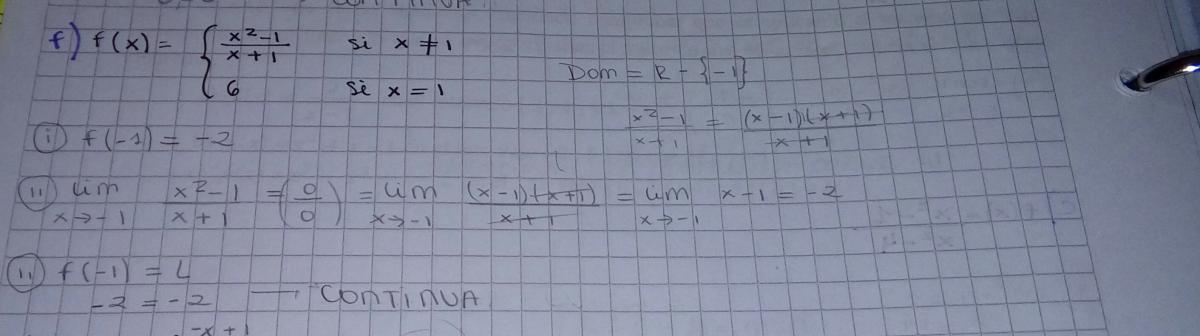 CONTINUA
f) f(x) = { x²-1 / x+1 si x ≠ 1
6 si x = 1
Dom = R - {-1}
x²-1 / x+1 = (x-1)(x+1) / x+1
i) f(-1) = -2
ii) lim x→-1 x²-1 / x+1 = (0/0) = lim x→-1 (x-1)(x+1) / x+1 = lim x→-1 x-1 = -2
iii) f(-1) = L
-2 = -2 — CONTINUA
-x+1